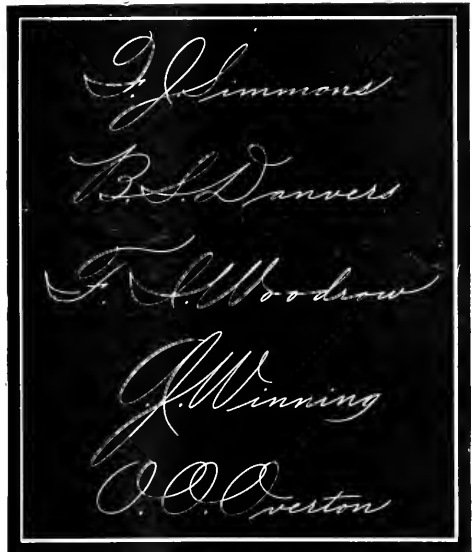 F. J. Simmons
B. S. Danvers
F. S. Woodrow
G. K. Winning
O. O. Overton